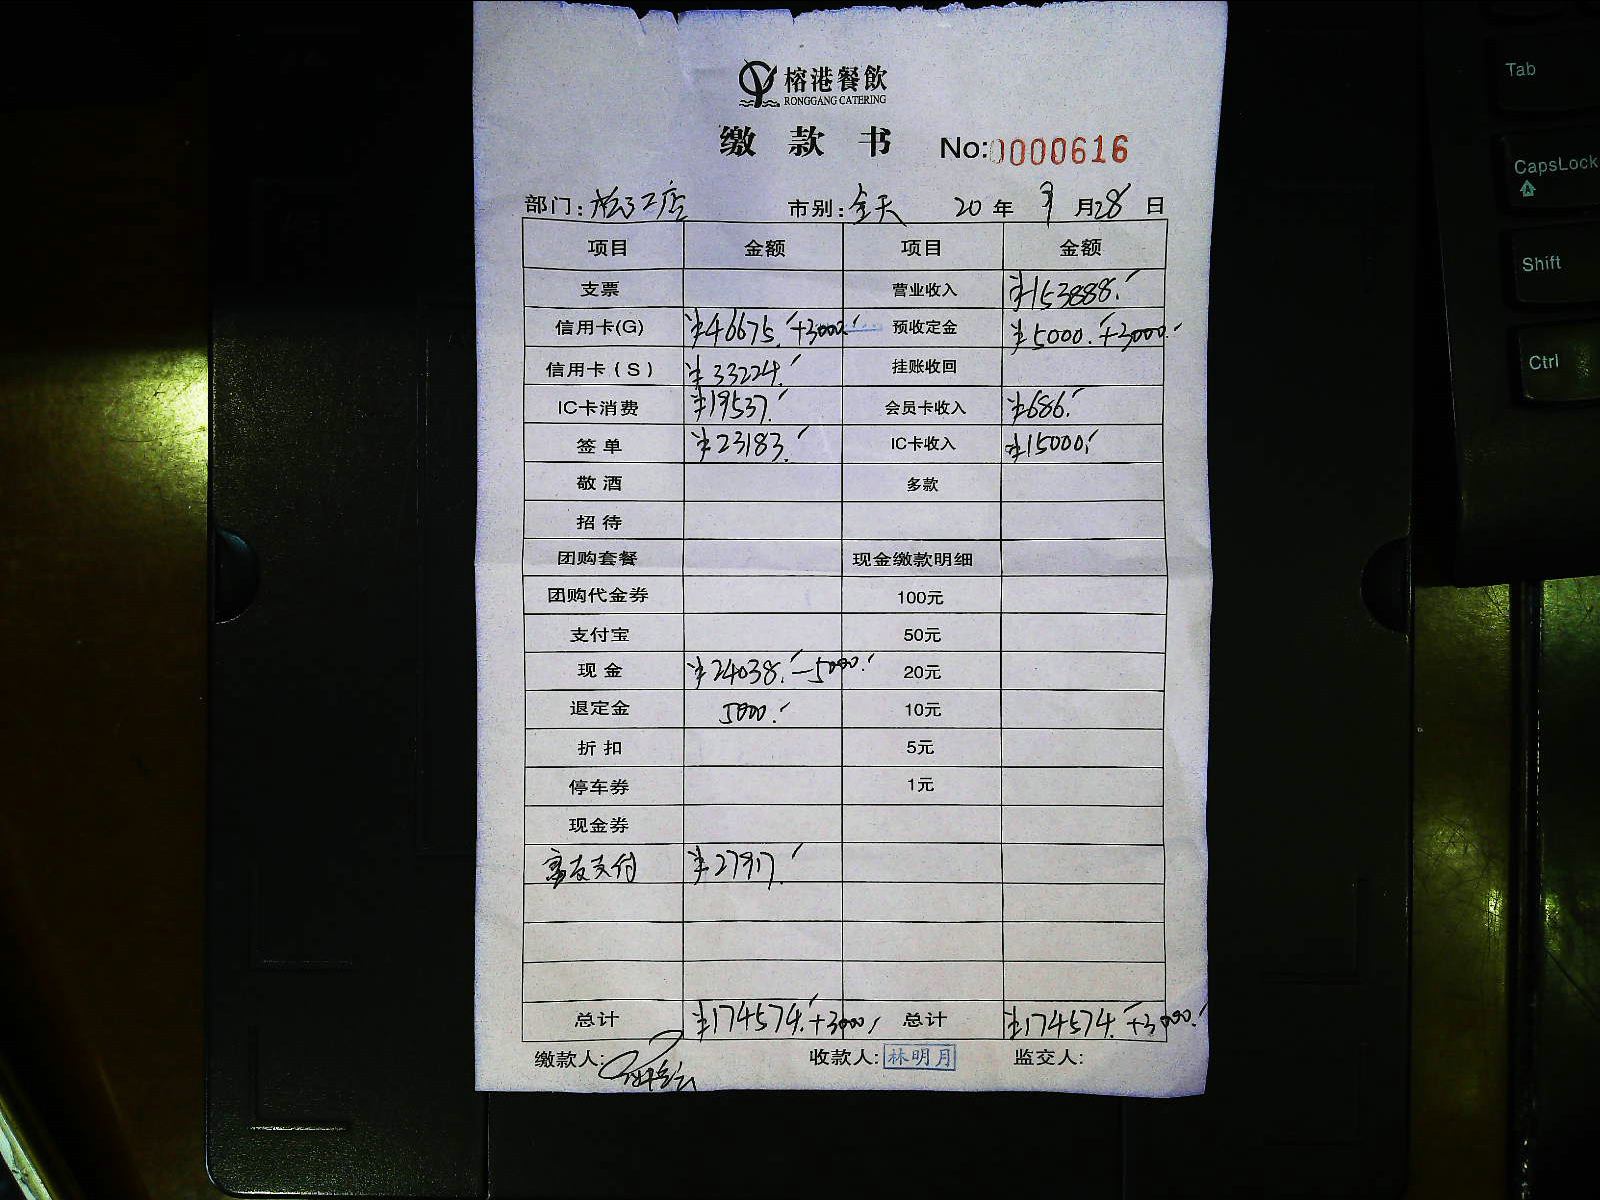 榕港餐飲
RONGGANG CATERING
缴款书 No:0000616
部门: 市别:全天 20年9月28日
项目 金额 项目 金额
支票 营业收入 ¥153888.-
信用卡(G) ¥46675.-+3000.- 预收定金 ¥5000.-+3000.-
信用卡(S) ¥33224.- 挂账收回
IC卡消费 ¥19537.- 会员卡收入 ¥686.-
签单 ¥23183.- IC卡收入 ¥15000.-
敬酒 多款
招待
团购套餐 现金缴款明细
团购代金券 100元
支付宝 50元
现金 ¥24038.-－5000.- 20元
退定金 5000.- 10元
折扣 5元
停车券 1元
现金券
富友支付 ¥27917.-
总计 ¥174574.-+3000.- 总计 ¥174574.-+3000.-
缴款人: 收款人:林明月 监交人:
Tab
CapsLock
Shift
Ctrl